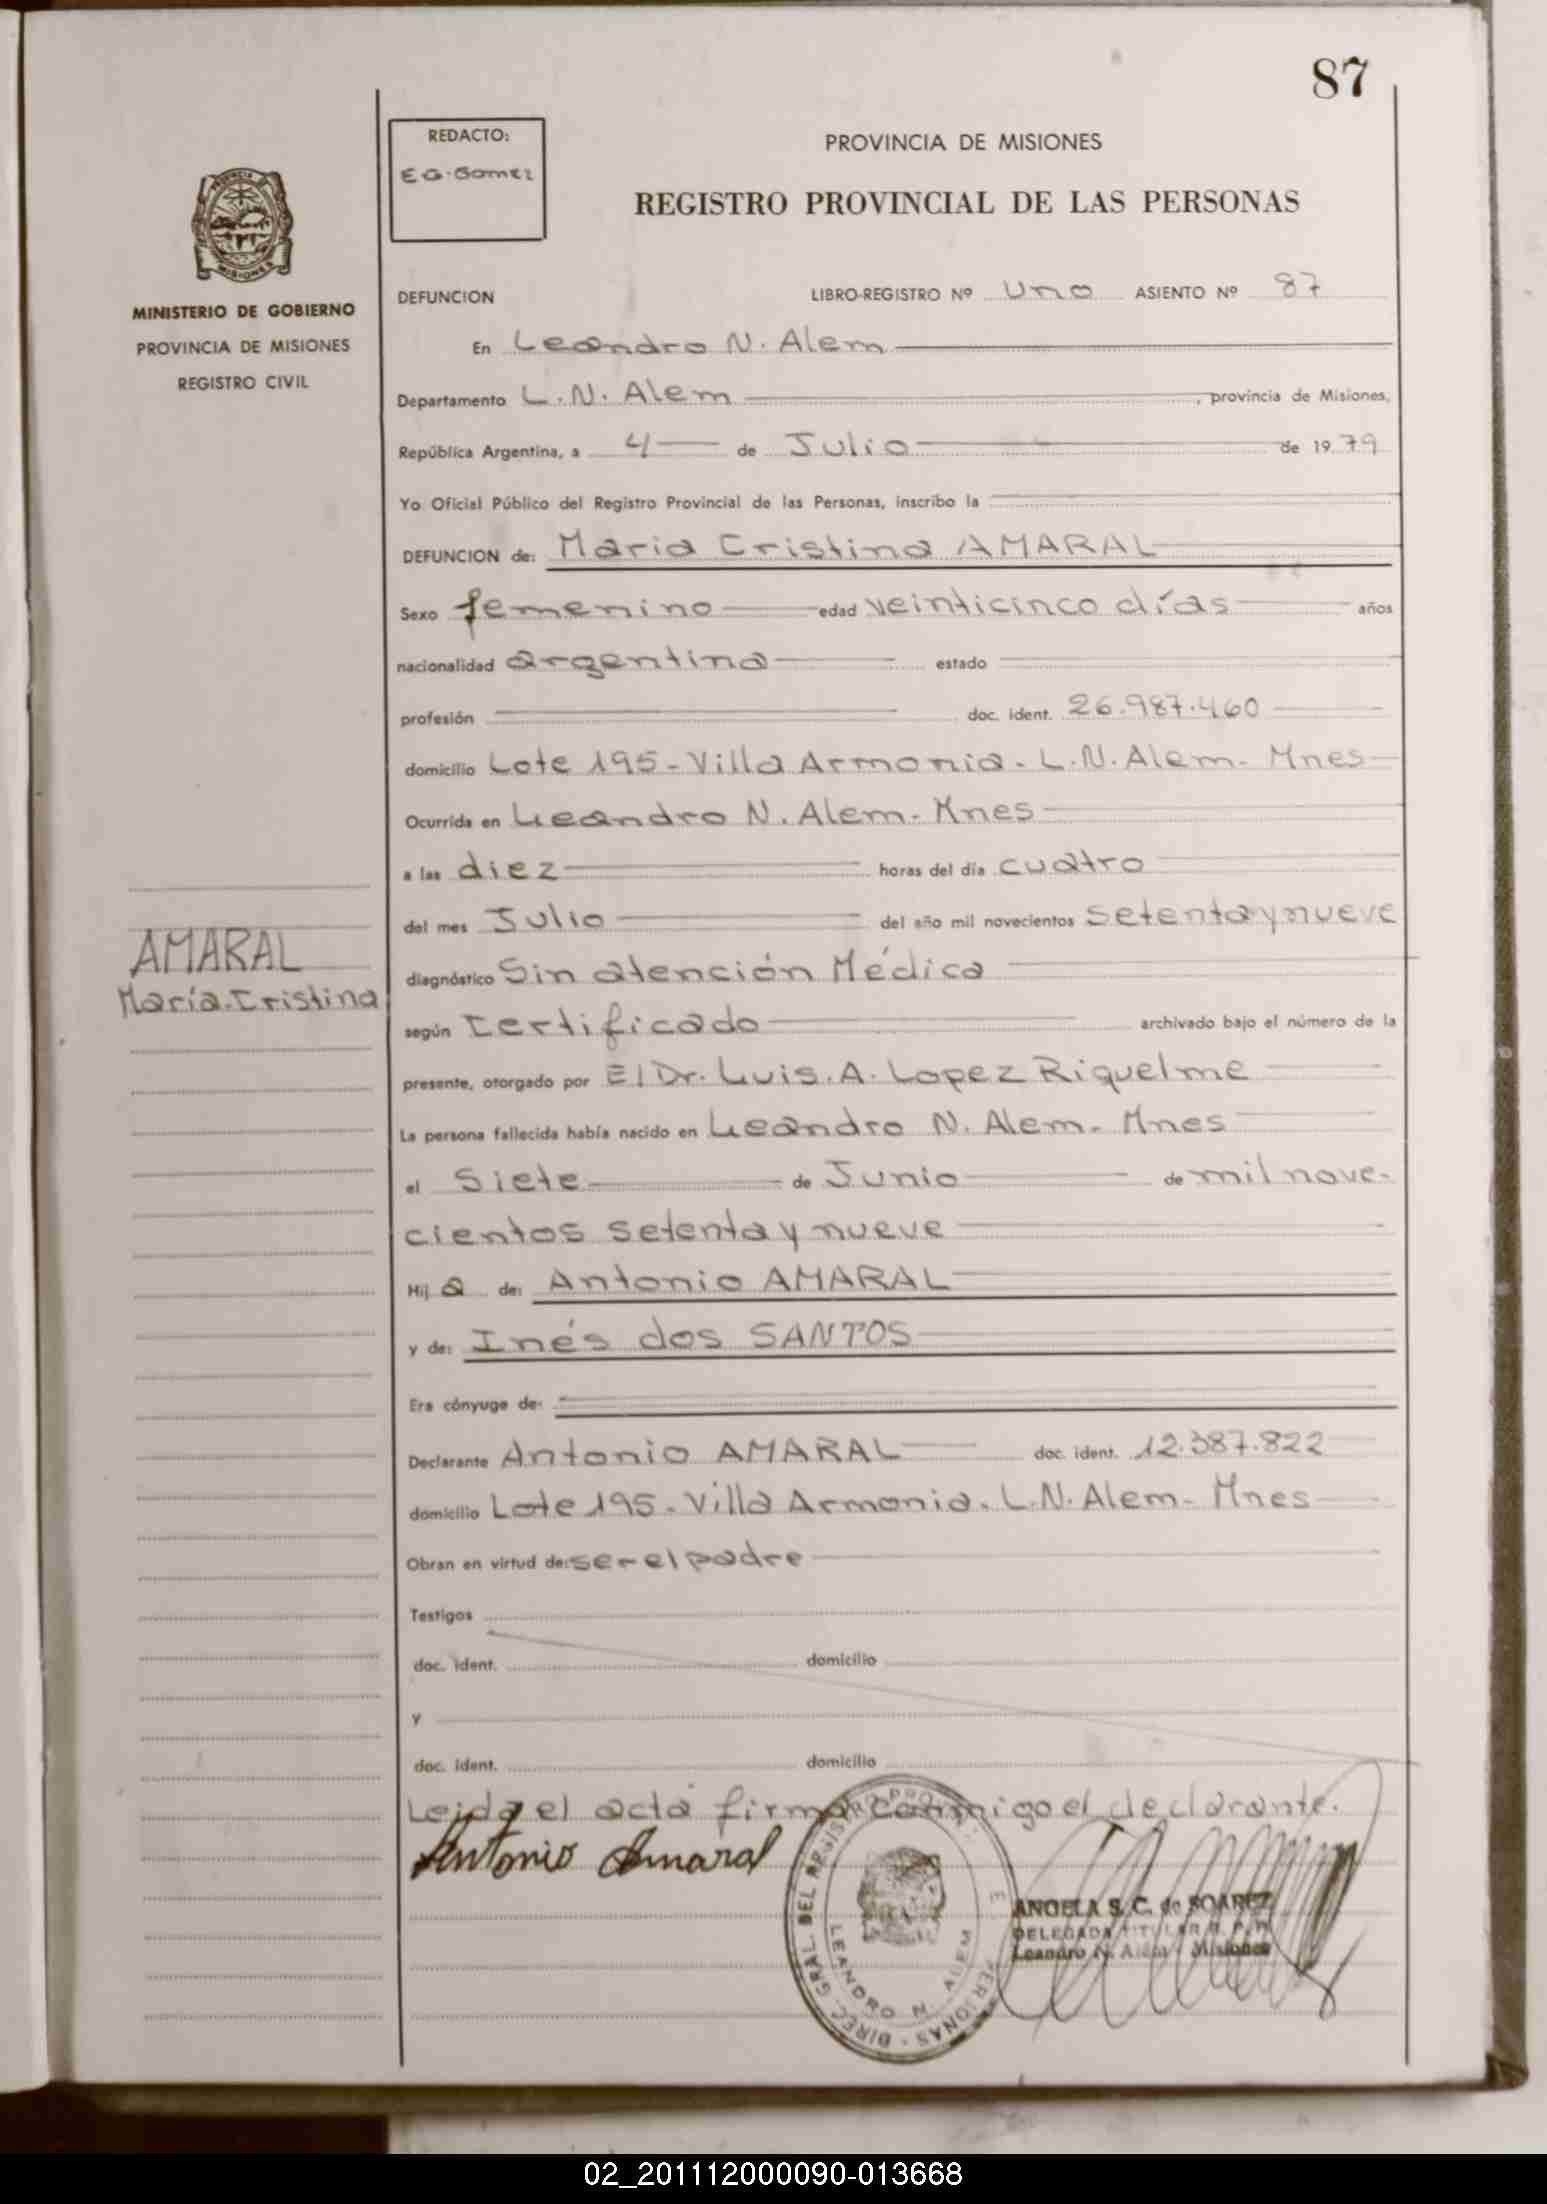 87
REDACTO:
E G. Gomez
PROVINCIA DE MISIONES
REGISTRO PROVINCIAL DE LAS PERSONAS
MISIONES
MINISTERIO DE GOBIERNO
PROVINCIA DE MISIONES
REGISTRO CIVIL
DEFUNCION LIBRO-REGISTRO Nº Uno ASIENTO Nº 87
En Leandro N. Alem
Departamento L. N. Alem, provincia de Misiones,
República Argentina, a 4 de Julio de 1979
Yo Oficial Público del Registro Provincial de las Personas, inscribo la
DEFUNCION de: Maria Cristina AMARAL
Sexo femenino edad veinticinco días años
nacionalidad argentina estado
profesión doc. ident. 26.987.460
domicilio Lote 195 - Villa Armonia. L. N. Alem - Mnes
Ocurrida en Leandro N. Alem - Mnes
a las diez horas del día cuatro
del mes Julio del año mil novecientos setenta y nueve
AMARAL
María Cristina
diagnóstico Sin atención Médica
según Certificado archivado bajo el número de la
presente, otorgado por El Dr. Luis. A. Lopez Riquelme
La persona fallecida había nacido en Leandro N. Alem - Mnes
el Siete de Junio de mil nove-
cientos setenta y nueve
Hij a de: Antonio AMARAL
y de: Inés dos SANTOS
Era cónyuge de:
Declarante Antonio AMARAL doc. ident. 12.387.822
domicilio Lote 195 - Villa Armonia. L. N. Alem - Mnes
Obran en virtud de: ser el padre
Testigos
doc. ident. domicilio
y
doc. ident. domicilio
Leida el acta firma conmigo el declarante.
Antonio Amaral
DIREC. GRAL. DEL REGISTRO PERSONAS
LEANDRO N. ALEM
ANGELA S. C. de SOAREZ
DELEGADA TITULAR R. P. P.
Leandro N. Alem - Misiones
02_201112000090-013668